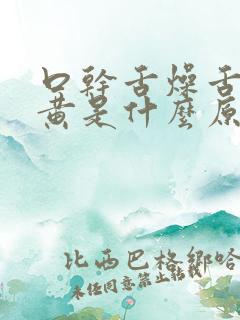 口幹舌燥舌
黄是什麼原
比西巴格鄉哈
未任同意禁止轉載